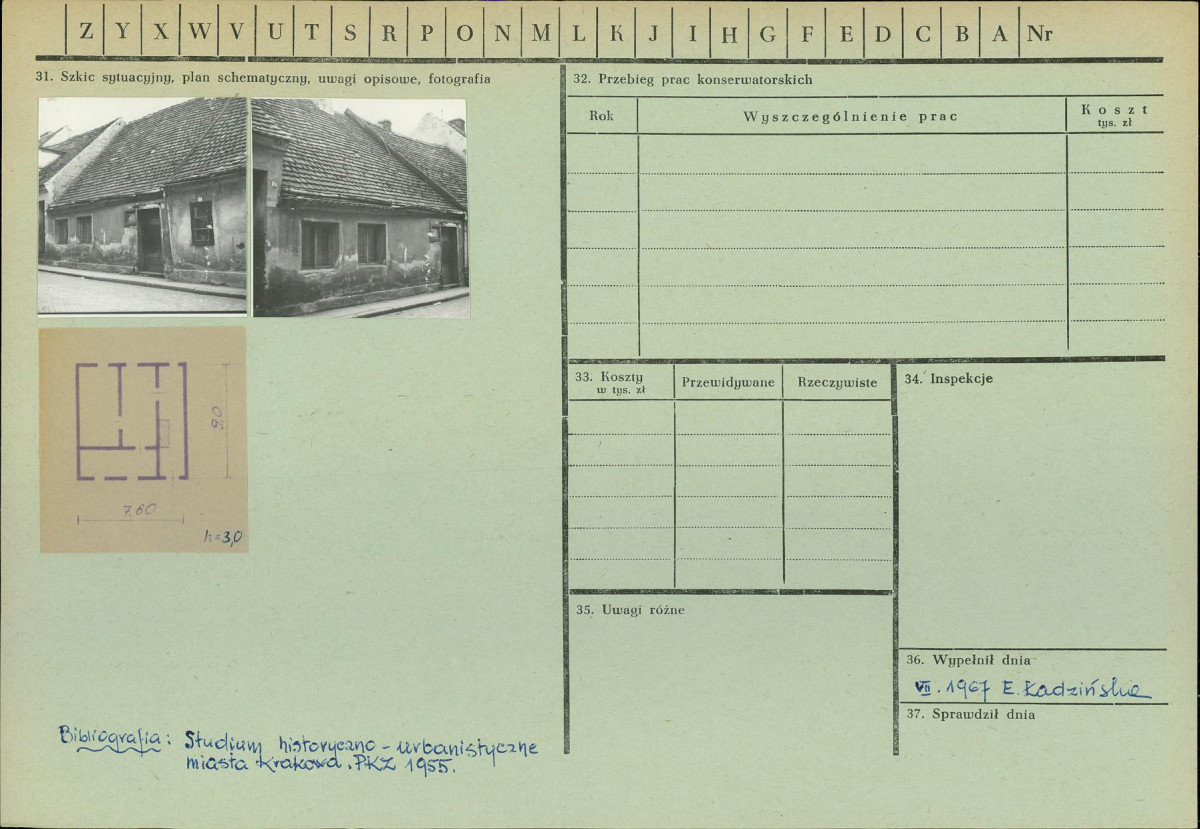 Z Y X W V U T S R P O N M L K J I H G F E D C B A Nr
31. Szkic sytuacyjny, plan schematyczny, uwagi opisowe, fotografia
9,0
7,60
h=3,0
Bibliografia: Studium historyczno-urbanistyczne
miasta Krakowa. PKZ 1955.
32. Przebieg prac konserwatorskich
Rok
Wyszczególnienie prac
Koszt
tys. zł
33. Koszty
w tys. zł
Przewidywane
Rzeczywiste
34. Inspekcje
35. Uwagi różne
36. Wypełnił dnia
VII. 1967 E. Ładzińska
37. Sprawdził dnia